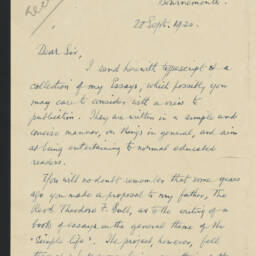 Bournemouth.
20 Sept. 1920.
Dear Sir,
I send herewith typescript of a
collection of my Essays, which possibly you
may care to consider with a view to
publication. They are written in a simple and
concise manner, on things in general, and aim
at being entertaining to normal educated
readers.
You will no doubt remember that some years
ago you made a proposal to my father, the
Revd Theodore F. as to the writing of a
book of essays on the general theme of the
"Simple life". The project, however, fell